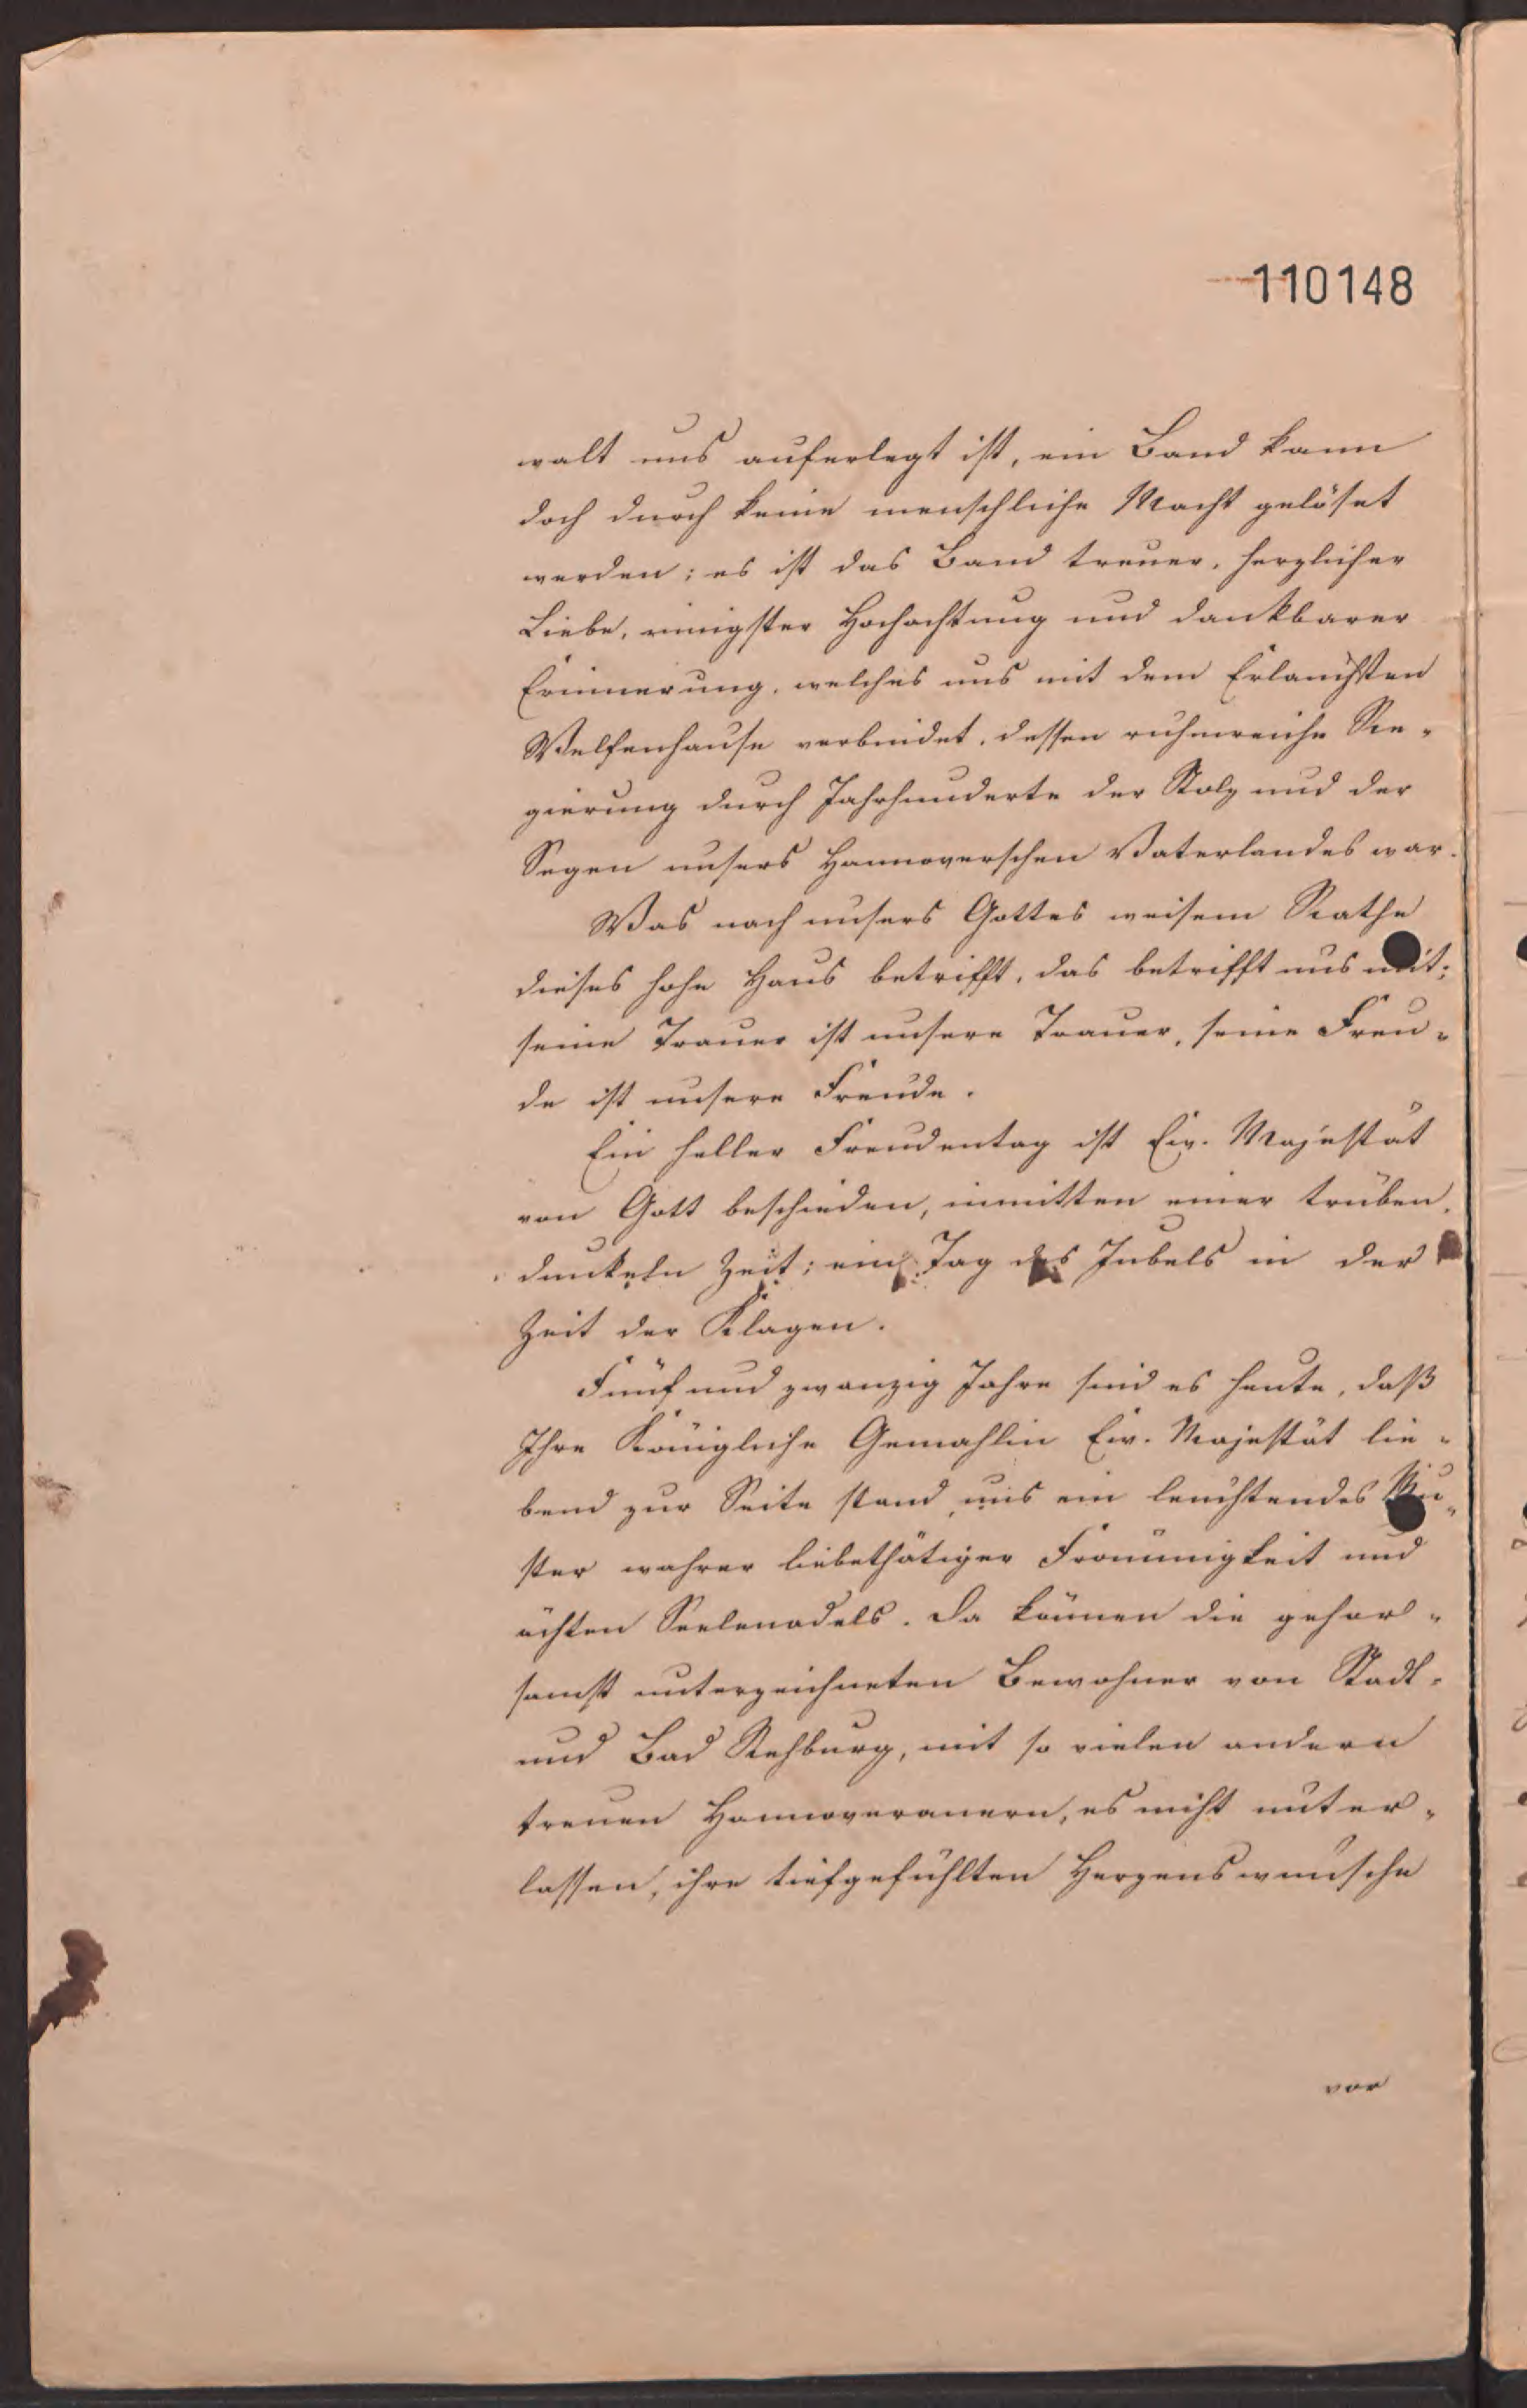 110148
walt uns auferlegt ist, ein Band kann
doch durch keine menschliche Macht gelöset
werden; es ist das Band treuer, herzlicher
Liebe, innigster Hochachtung und dankbarer
Erinnerung, welches uns mit dem Erlauchten
Welfenhause verbindet, dessen ruhmreiche Re-
gierung durch Jahrhunderte der Stolz und der
Segen unsers Hannoverschen Vaterlandes war.
Was nach unsers Gottes weisem Rathe
dieses hohe Haus betrifft, das betrifft uns mit;
seine Trauer ist unsere Trauer, seine Freu-
de ist unsere Freude.
Ein heller Freudentag ist Ew. Majestät
von Gott beschieden, inmitten einer trüben,
dunkeln Zeit; ein Tag des Jubels in der
Zeit der Klagen.
Fünf und zwanzig Jahre sind es heute, daß
Ihre Königliche Gemahlin Ew. Majestät lie-
bend zur Seite stand, uns ein leuchtendes Mu-
ster wahrer liebethätiger Frömmigkeit und
ächten Seelenadels. Da können die gehor-
samst unterzeichneten Bewohner von Stadt-
und Bad Rehburg, mit so vielen andern
treuen Hannoveranern, es nicht unter-
lassen, ihre tiefgefühlten Herzenswünsche
vor